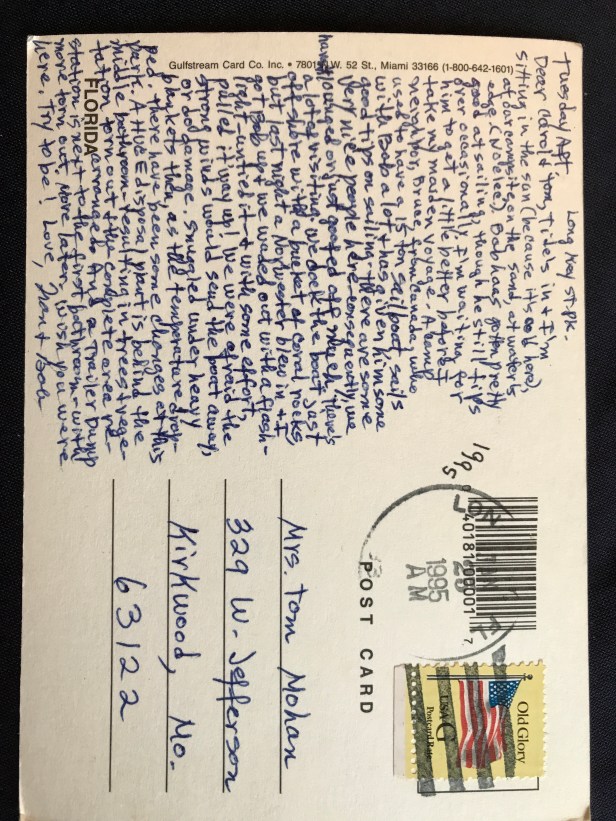 Gulfstream Card Co. Inc. • 7801 N.W. 52 St., Miami 33166 (1-800-642-1601)
Tuesday Aft Long Key St. Pk.
Dear Carol & Tom, Tide's in & I'm
sitting in the sun (because it's cold here),
at our campsite on the sand, at water's
edge (No lee). Bob has gotten pretty
good at sailing, though he still tips
over occasionally. I'm waiting for
him to get a little better before I
take my maiden voyage. A camp
neighbor, Bruce from Canada, who
used to have a 15 ton sailboat sails
with Bob a lot & has given him some
good tips on sailing. There are some
very nice people here - consequently, we
haven't lounged or just goofed off much, there's
a lot of visiting. We dock the boat just
off shore with a bucket of coral rocks
but last night a Nor'wester blew in & I
got Bob up & we waded out with a flash-
light - untied it - & with some effort,
pulled it way up! We were afraid the
strong winds would send the boat away,
or do damage. Snuggled under heavy
blankets then, as the temperature drop-
ped. There have been some changes at this
park. A HUGE disposal plant is behind the
middle bathroom - resulting in trees & vege-
tation torn out & the complete area re-
arranged. And a Trailer Dump
station is next to the first bathroom - with
more torn out. More later, wish you were
here. Try to be! Love, & Bob
FLORIDA
1995
40181 00001 7
1995
AM
POST CARD
Old Glory
USA G
Postcard Rate
Mrs. Tom Mohan
329 W. Jefferson
Kirkwood, Mo.
63122